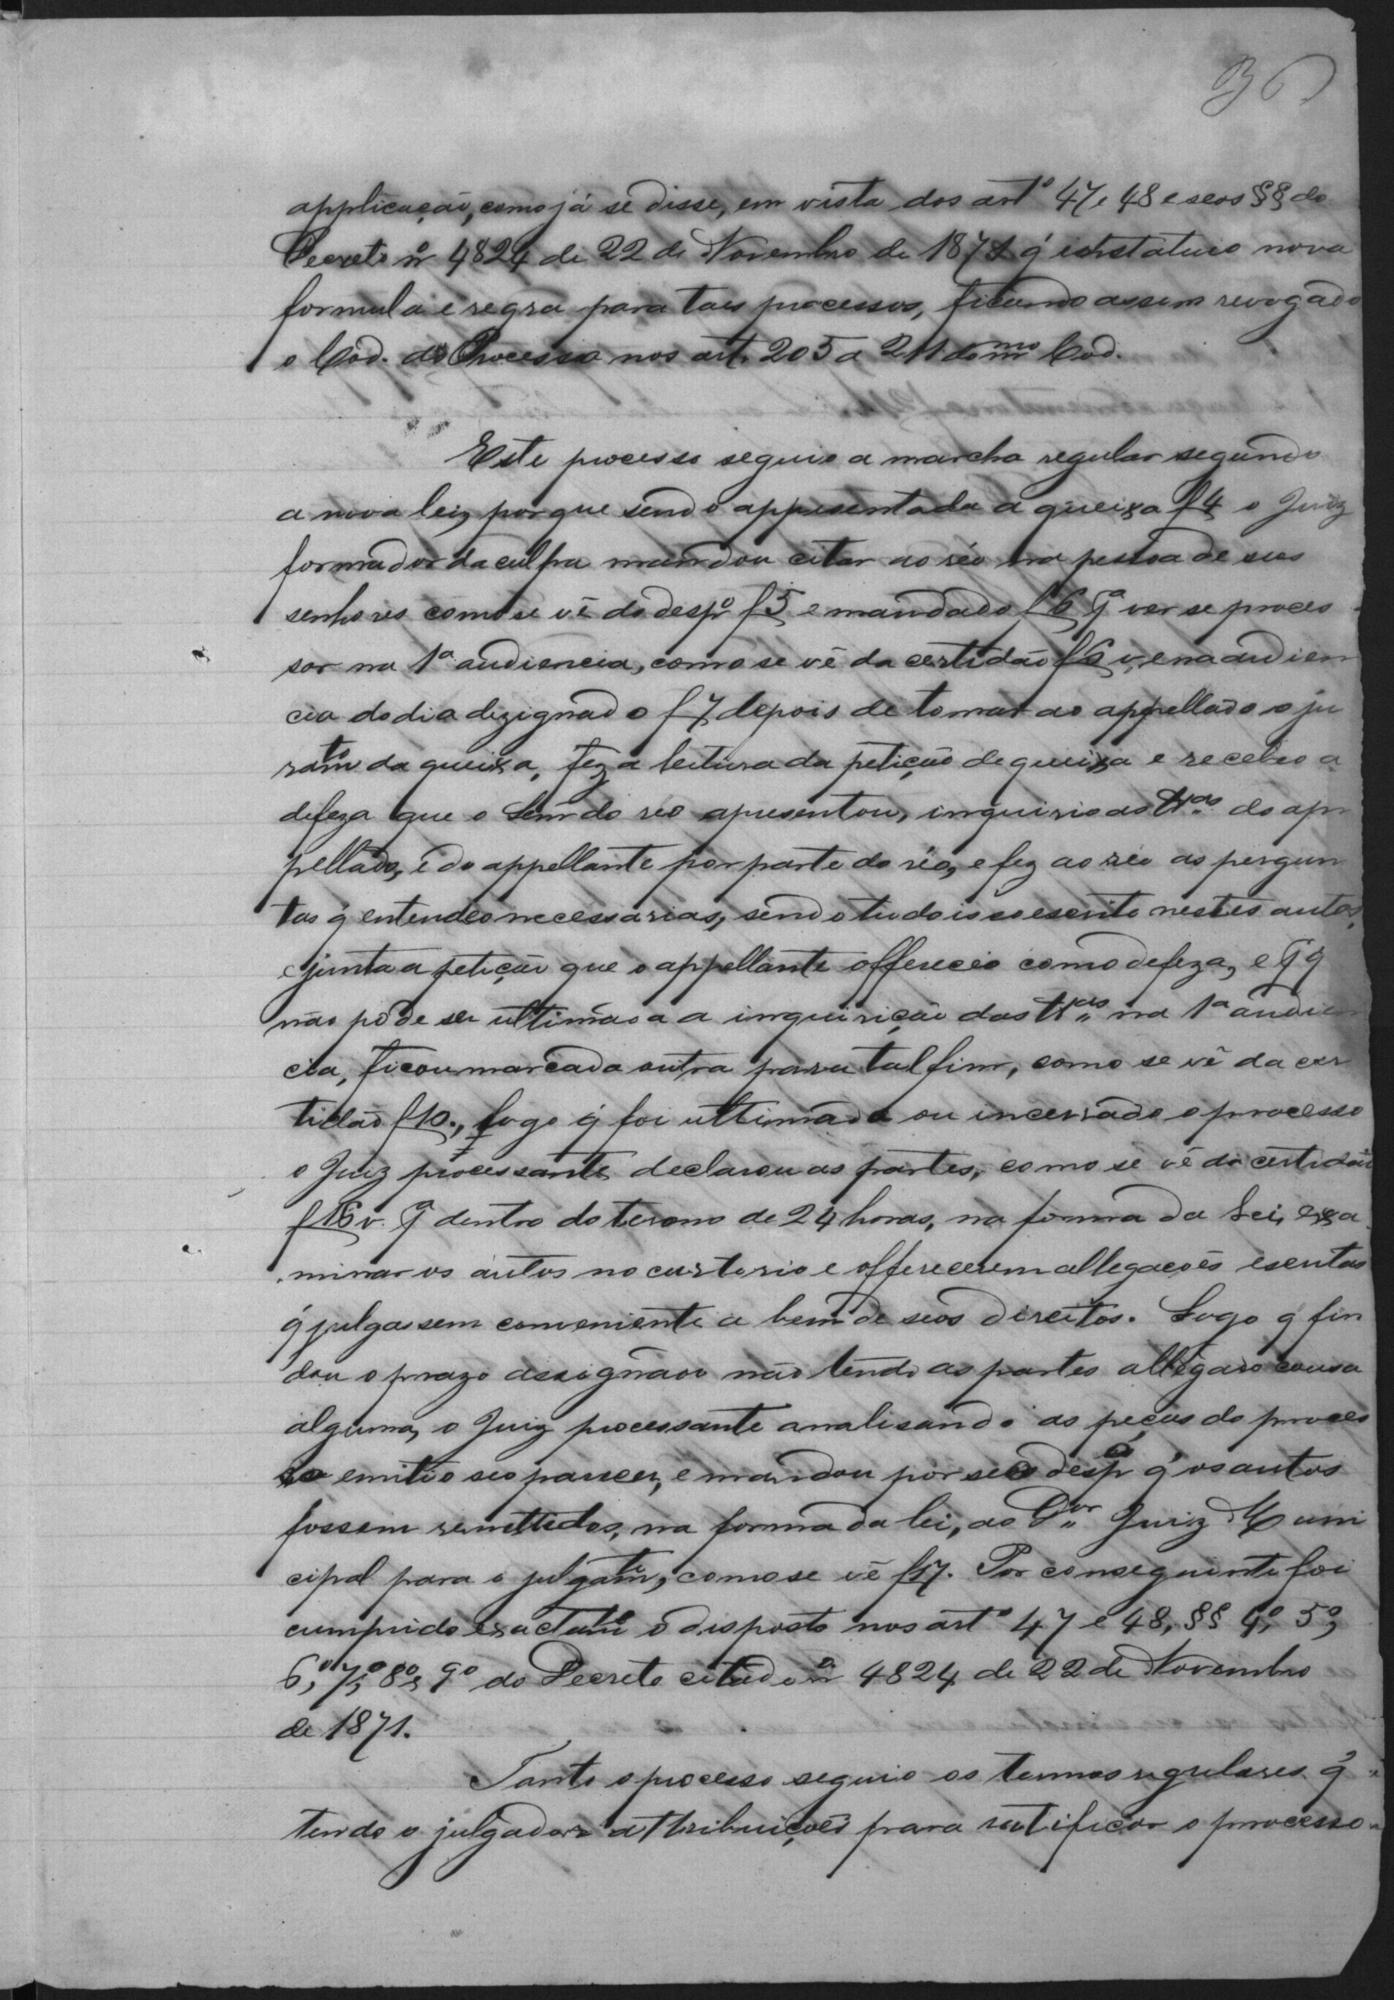 36
applicação, como já se disse, em vista dos artº 47 e 48 e seos §§ do
Decreto nº 4824 de 22 de Novembro de 1871 q' instatuio nova
formula e regra para taes processos, ficando assim revogado
o Cod. do Processo nos art. 205 a 211 do mmo Cod.
Este processo seguio a marcha regular segundo
a nova lei, porque sendo appresentada a queixa f 4 o Juiz
formador da culpa mandou citar ao réo na pessoa de seus
senhores como se vê do despº f 5 e mandado f 6 pª ver se proces
sar na 1ª audiencia, como se vê da certidão f 6 v, e na audien
cia do dia dezignado f 7 depois de tomar ao appellado o ju
ramto da queixa, fez a leitura da petição de queixa e recebeo a
defeza que o Senr do reo apresentou, inquirio as ttas do ap
pellado, e do appellante por parte do réo, e fez ao réo as pergun
tas q' entendeo necessarias, sendo tudo isso escrito nestes autos,
e junta a petição que o appellante offereceo como defeza, e pq
não pôde ser ultimada a inquirição das ttas na 1ª audien
cia, ficou marcada outra para tal fim, como se vê da cer
tidão f 10., Logo q' foi ultimado ou incerrado o processo
o Juiz processante declarou as partes, como se vê da certidão
f 16 v. pª dentro do termo de 24 horas, na forma da Lei, exa
minar os autos no cartorio e offerecerem allegações escritas
q' julgassem conveniente a bem de seos direitos. Logo q' fin
dou o prazo assignado não tendo as partes allegado cousa
alguma, o Juiz processante analisando as peças do proces
so emitio seo parecer, e mandou por seo despº q' os autos
fossem remettidos, na forma da lei, ao Dor Juiz Muni
cipal para o julgamto, como se vê f 17. Por conseguinte foi
cumprido exactamte o disposto nos artº 47 e 48, §§ 4º, 5º,
6º, 7º, 8º, 9º do Decreto citado nº 4824 de 22 de Novembro
de 1871.
Tanto o processo seguio os termos regulares q'
tendo o julgador attribuições para ratificar o processo